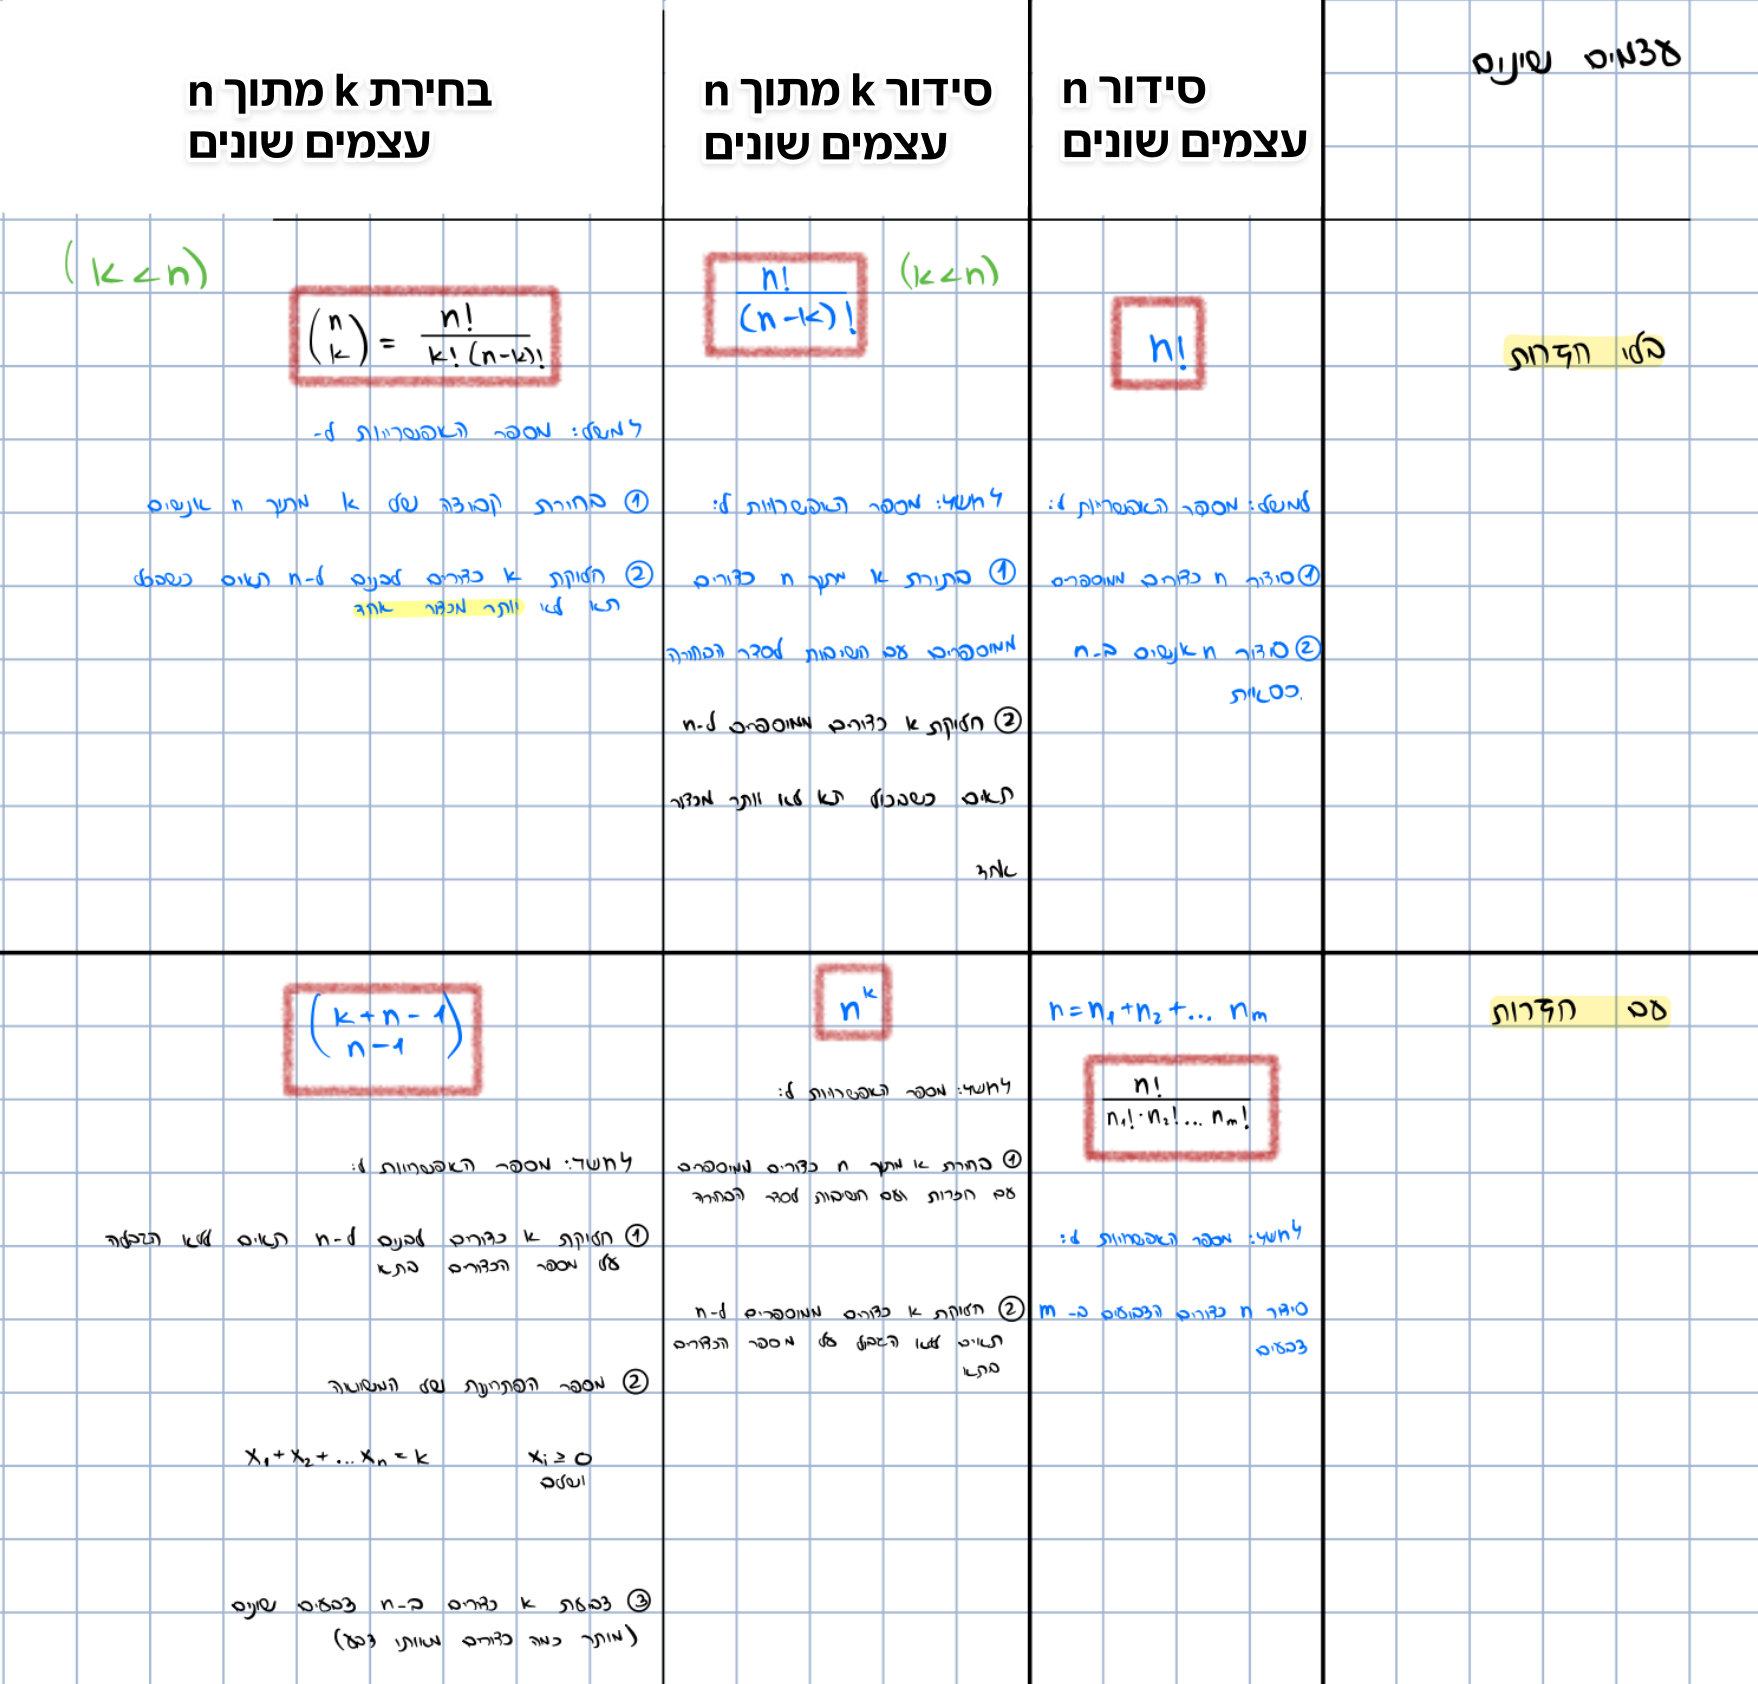 עצמים שונים
סידור n
עצמים שונים
סידור k מתוך n
עצמים שונים
בחירת k מתוך n
עצמים שונים
בלי חזרות
n!
למשל: מספר האפשרויות ל:
① סידור n כדורים ממוספרים
② סידור n אנשים ב-n
כסאות.
n!/(n-k)! (k<n)
למשל: מספר האפשרויות ל:
① בחירת k מתוך n כדורים
ממוספרים עם חשיבות לסדר הבחירה
② חלוקת k כדורים ממוספרים ל-n
תאים כשבכול תא לא יותר מכדור
אחד
(k<n)
(n k) = n!/k!(n-k)!
למשל: מספר האפשרויות ל-
① בחירת קבוצה של k מתוך n אנשים
② חלוקת k כדורים לבנים ל-n תאים כשבכל
תא לא יותר מכדור אחד
עם חזרות
n=n₁+n₂+... nₘ
n!/n₁!·n₂!... nₘ!
למשל: מספר האפשרויות ל:
סידור n כדורים הצבועים ב- m
צבעים
nᵏ
למשל: מספר האפשרויות ל:
① בחירת k מתוך n כדורים ממוספרים
עם חזרות ועם חשיבות לסדר הבחירה
② חלוקת k כדורים ממוספרים ל-n
תאים ללא הגבול על מספר הכדורים
בתא
(k+n-1 n-1)
למשל: מספר האפשרויות ל:
① חלוקת k כדורים לבנים ל-n תאים ללא הגבלה
על מספר הכדורים בתא
② מספר הפתרונות של המשוואה
x₁+x₂+...xₙ=k xᵢ≥0
ושלם
③ צביעת k כדורים ב-n צבעים שונים
(מותר כמה כדורים מאותו צבע)